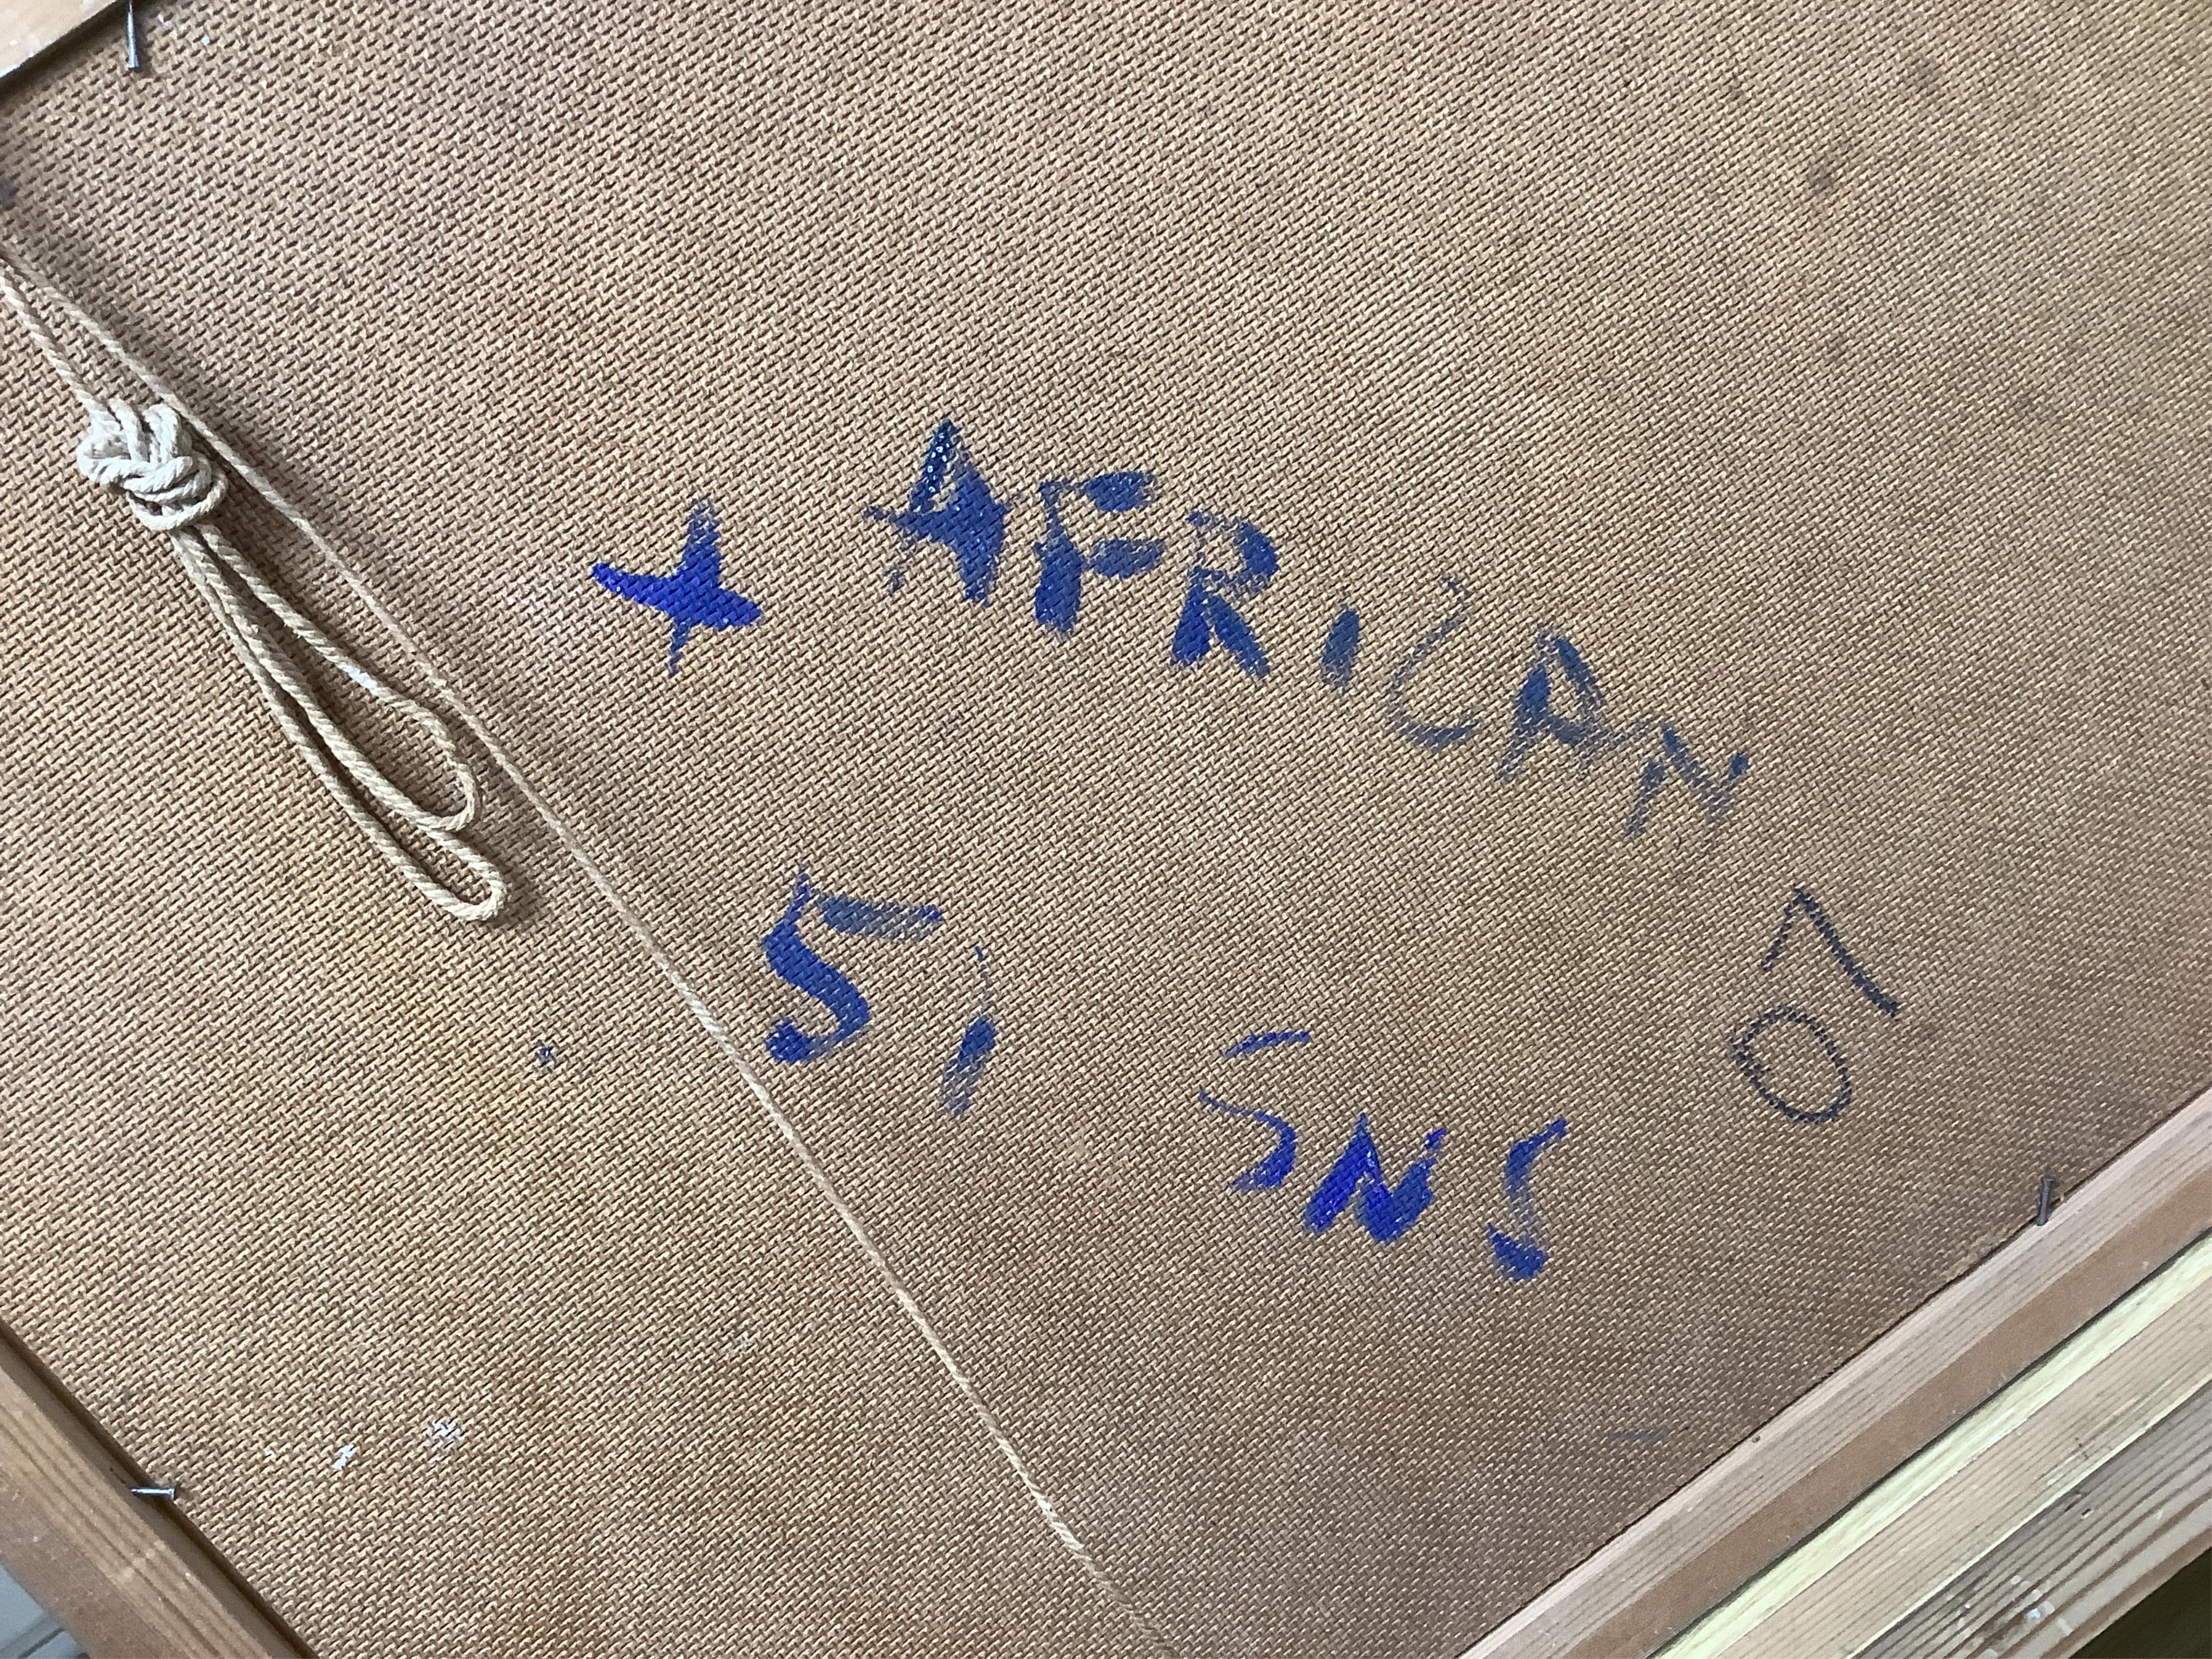 + AFRICAN
51 SNS
07